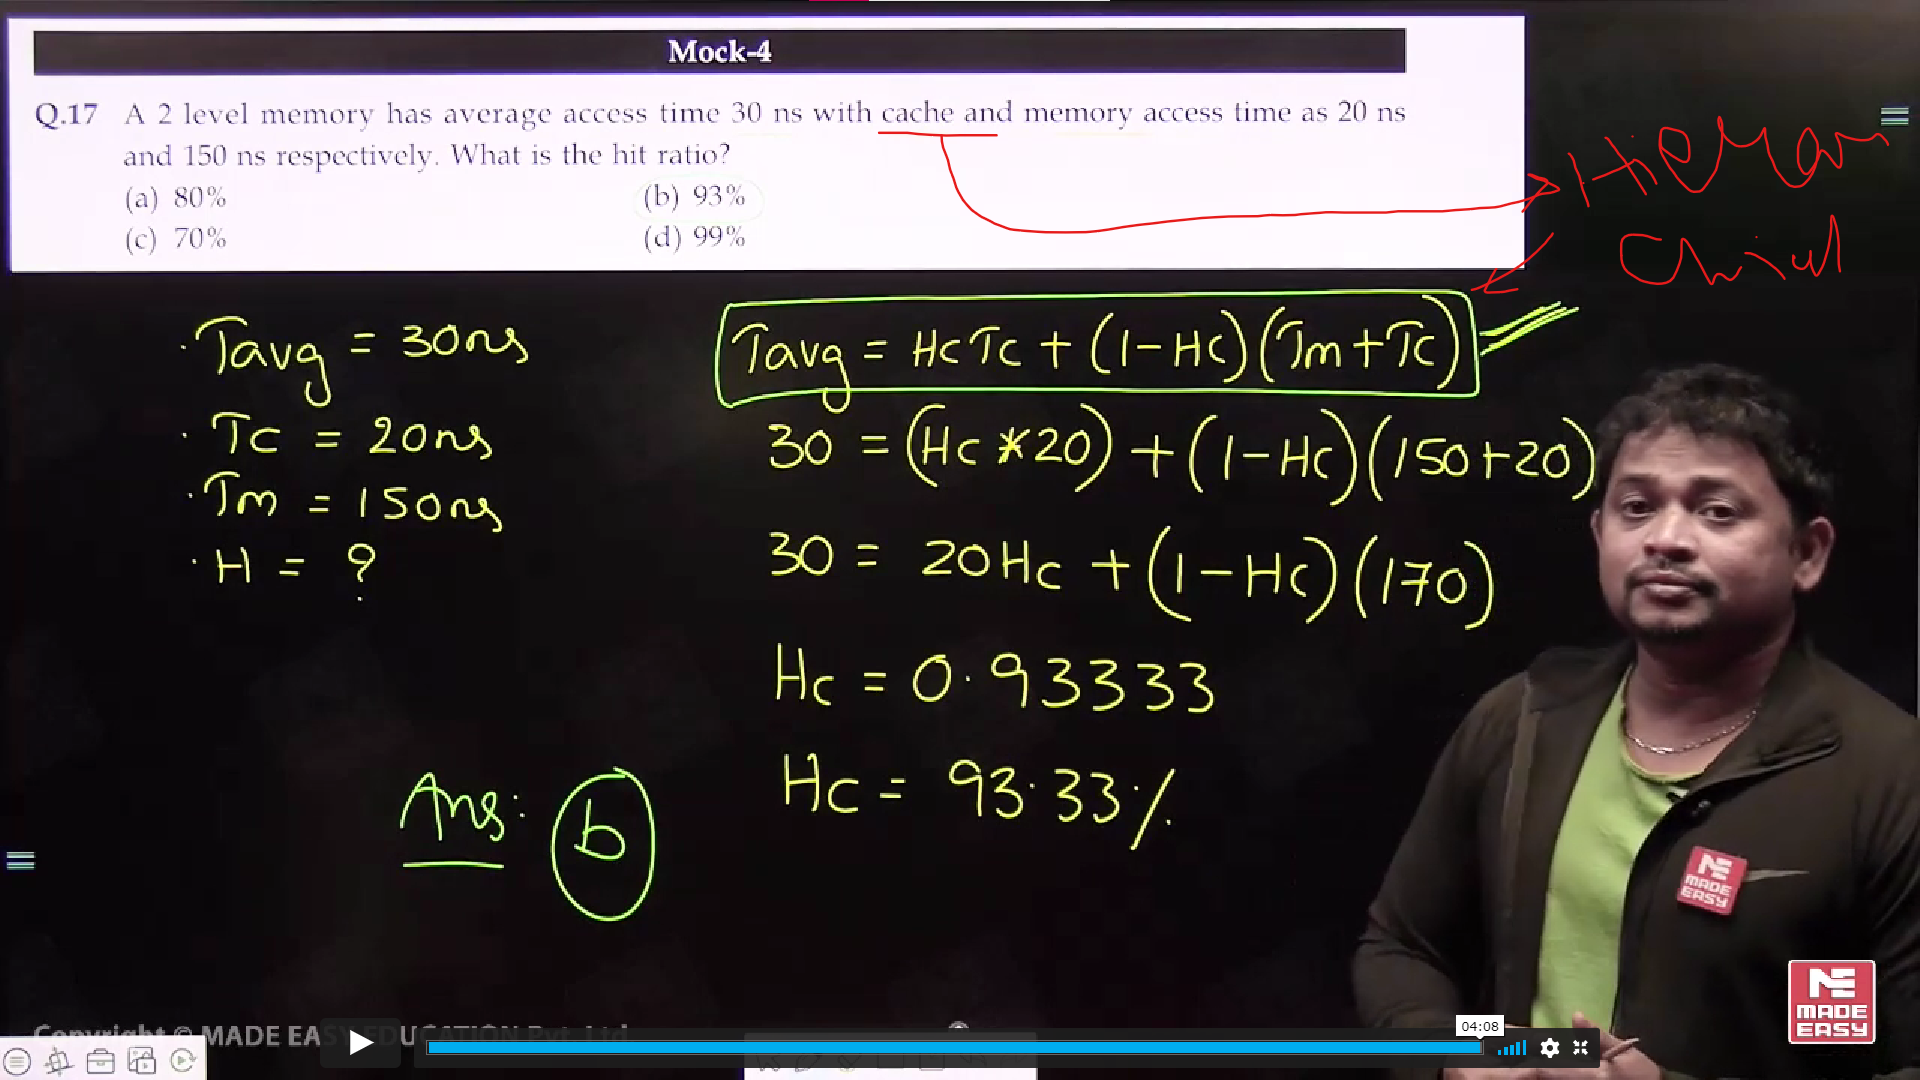 Mock-4
Q.17 A 2 level memory has average access time 30 ns with cache and memory access time as 20 ns
and 150 ns respectively. What is the hit ratio?
(a) 80% (b) 93%
(c) 70% (d) 99%
Hierar
chical
Tavg = 30ns
Tc = 20ns
Tm = 150ns
H = ?
Tavg = HcTc + (1-Hc)(Tm+Tc)
30 = (Hc *20) + (1-Hc)(150+20)
30 = 20Hc + (1-Hc)(170)
Hc = 0.93333
Hc = 93.33%
Ans: b
MADE
EASY
MADE
EASY
Copyright © MADE EASY EDUCATION Pvt. Ltd
04:08